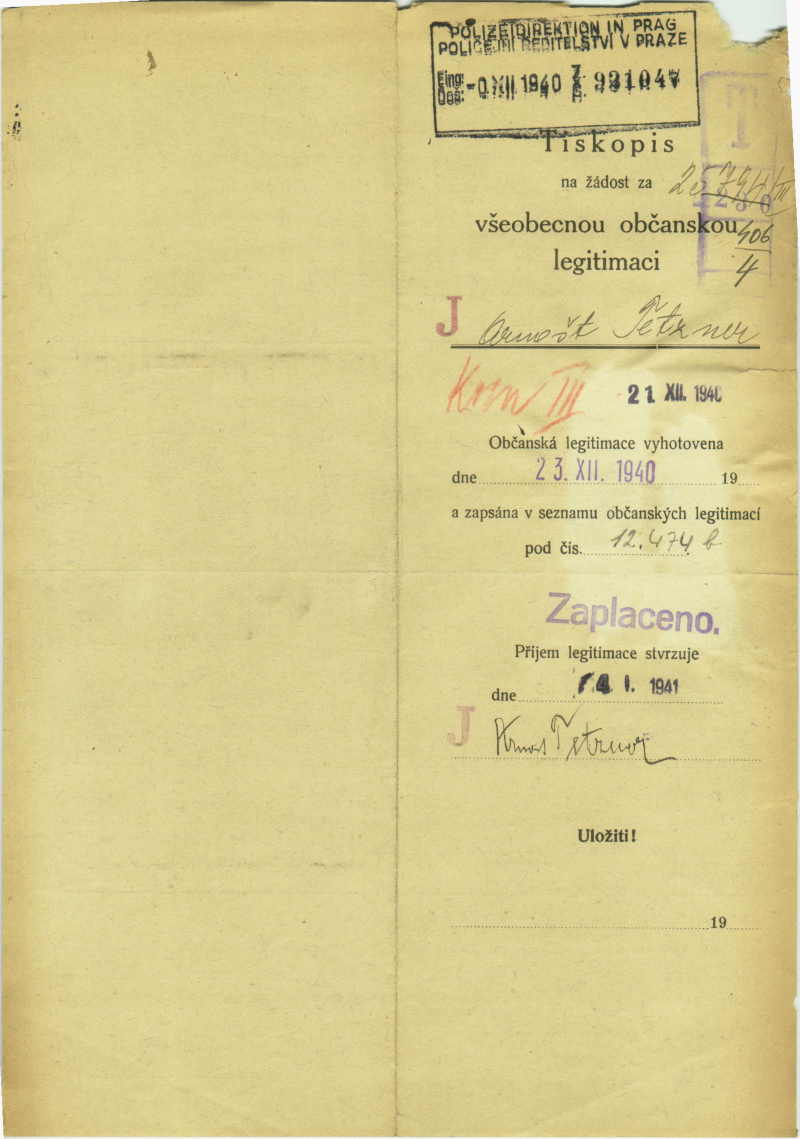 POLIZEIDIREKTION IN PRAG
POLICEJNÍ ŘEDITELSTVÍ V PRAZE
Eing:
Doš:
XII 1940
T
Tiskopis
na žádost za
všeobecnou občanskou
406
legitimaci
4
J Arnošt Petzner
III 21 XII. 1940
Občanská legitimace vyhotovena
dne 23. XII. 1940 19
a zapsána v seznamu občanských legitimací
pod čís. 12.474 b
Zaplaceno.
Příjem legitimace stvrzuje
dne I. 1941
J Arnošt Petzner
Uložiti!
19